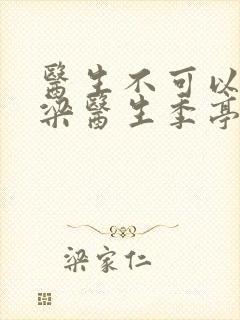 醫生不可以
梁醫生季亭
梁家仁